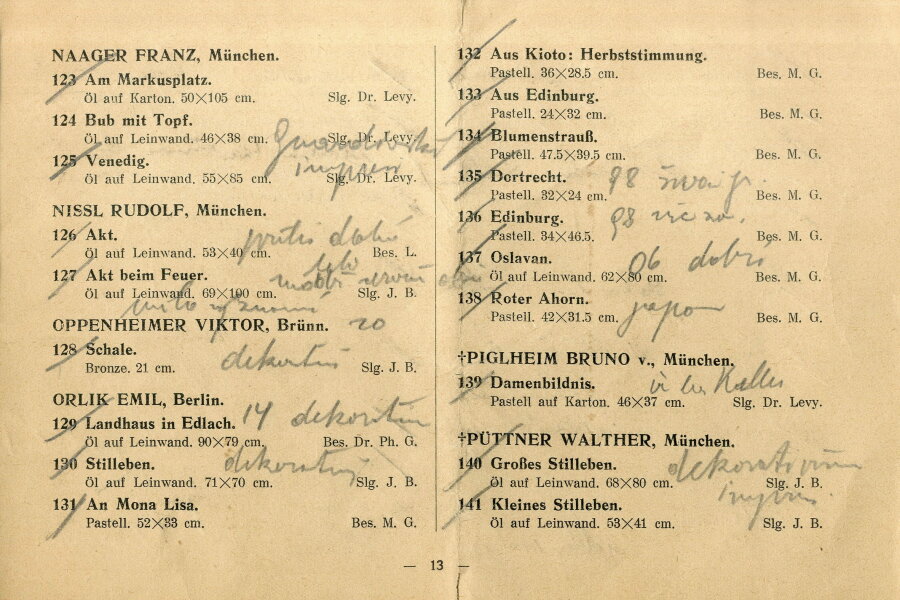 NAAGER FRANZ, München.
123 Am Markusplatz.
Öl auf Karton. 50×105 cm. Slg. Dr. Levy.
124 Bub mit Topf.
Öl auf Leinwand. 46×38 cm. Slg. Dr. Levy.
125 Venedig.
Öl auf Leinwand. 55×85 cm. Slg. Dr. Levy.
NISSL RUDOLF, München.
126 Akt.
Öl auf Leinwand. 53×40 cm. Bes. L.
127 Akt beim Feuer.
Öl auf Leinwand. 69×100 cm. Slg. J. B.
OPPENHEIMER VIKTOR, Brünn. 20
128 Schale.
Bronze. 21 cm. Slg. J. B.
ORLIK EMIL, Berlin.
129 Landhaus in Edlach. 14
Öl auf Leinwand. 90×79 cm. Bes. Dr. Ph. G.
130 Stilleben.
Öl auf Leinwand. 71×70 cm. Slg. J. B.
131 An Mona Lisa.
Pastell. 52×33 cm. Bes. M. G.
132 Aus Kioto: Herbststimmung.
Pastell. 36×28.5 cm. Bes. M. G.
133 Aus Edinburg.
Pastell. 24×32 cm. Bes. M. G.
134 Blumenstrauß.
Pastell. 47.5×39.5 cm. Bes. M. G.
135 Dortrecht. 98
Pastell. 32×24 cm. Bes. M. G.
136 Edinburg. 98
Pastell. 34×46.5. Bes. M. G.
137 Oslavan. 06 dobrs
Öl auf Leinwand. 62×80 cm. Bes. M. G.
138 Roter Ahorn. japon
Pastell. 42×31.5 cm. Bes. M. G.
†PIGLHEIM BRUNO v., München.
139 Damenbildnis.
Pastell auf Karton. 46×37 cm. Slg. Dr. Levy.
†PÜTTNER WALTHER, München.
140 Großes Stilleben.
Öl auf Leinwand. 68×80 cm. Slg. J. B.
141 Kleines Stilleben.
Öl auf Leinwand. 53×41 cm. Slg. J. B.
— 13 —